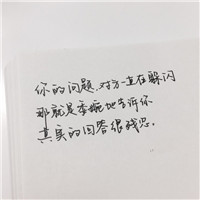 你的问题，对方一直在躲闪
那就是委婉地告诉你
其实的回答很残忍。